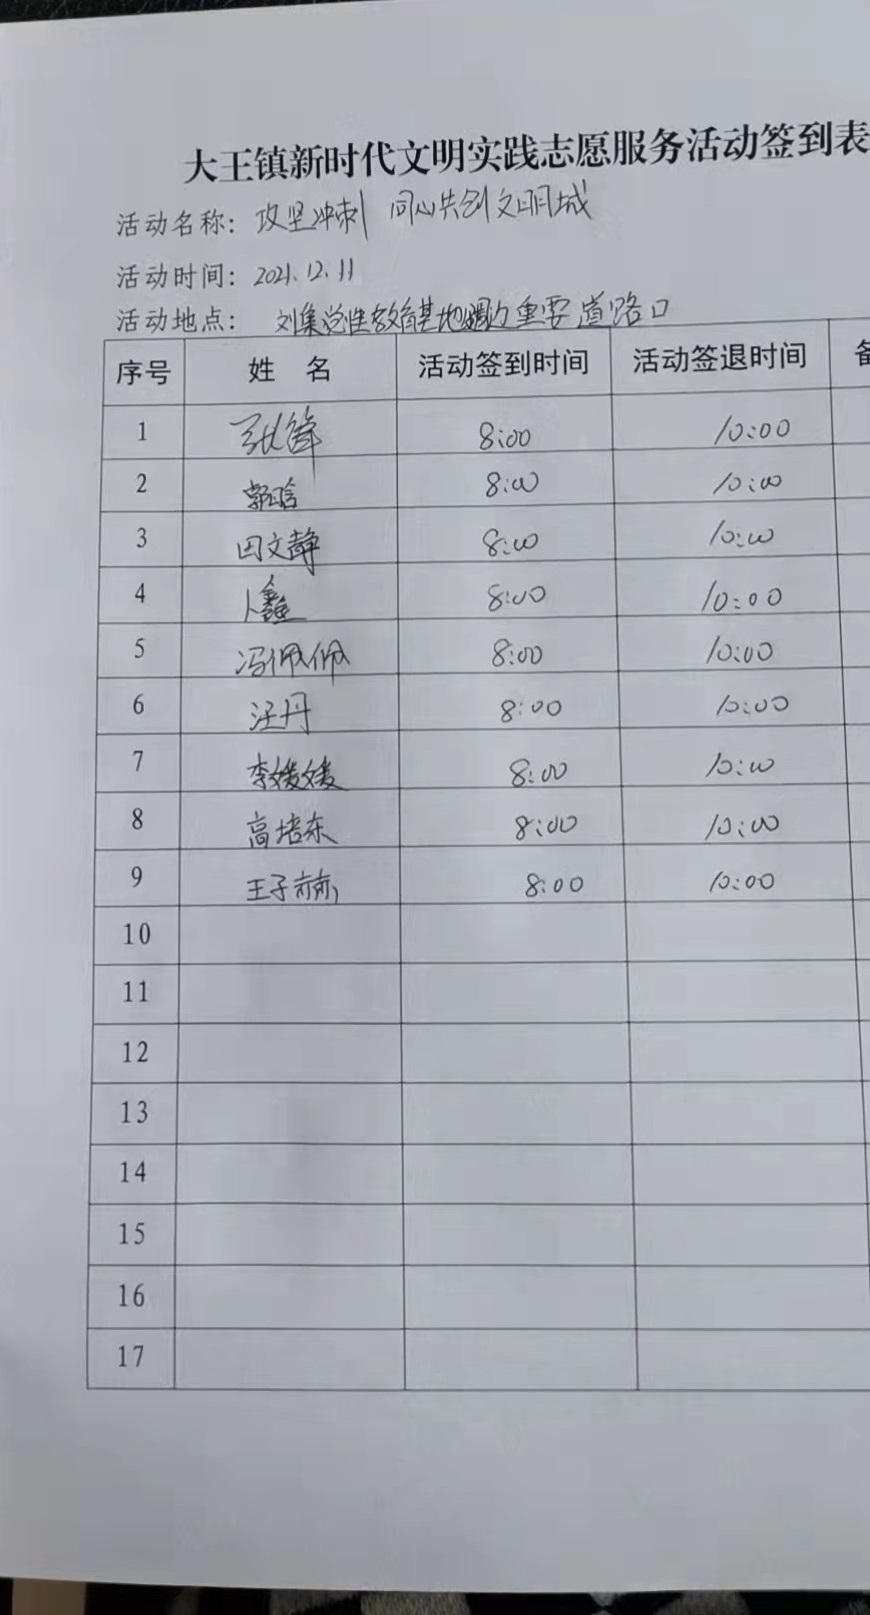 大王镇新时代文明实践志愿服务活动签到表
活动名称：攻坚冲刺 同心共创文明城
活动时间：2021.12.11
活动地点：刘集党性教育基地周边重要道路口
序号 姓 名 活动签到时间 活动签退时间 备
1 8:00 10:00
2 郭晗 8:00 10:00
3 田文静 8:00 10:00
4 卜鑫 8:00 10:00
5 冯佩佩 8:00 10:00
6 汪丹 8:00 10:00
7 李媛媛 8:00 10:00
8 高培东 8:00 10:00
9 王子赫 8:00 10:00
10
11
12
13
14
15
16
17